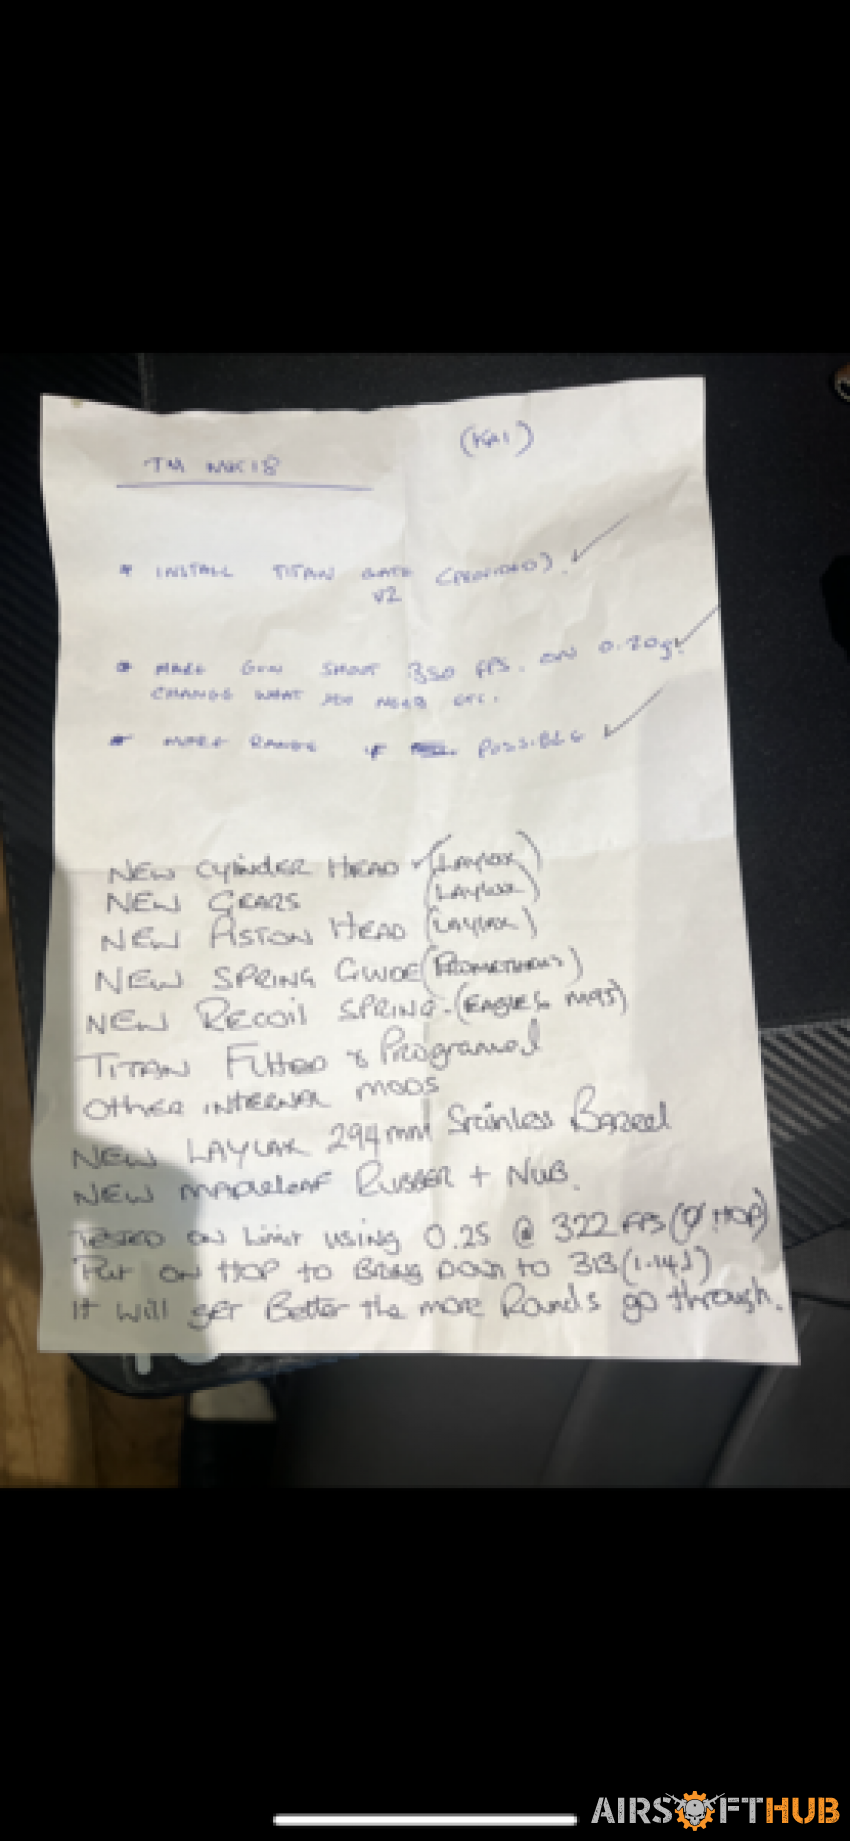 (KAI)
TM MK18
* INSTALL TITAN GATE (PROVIDED).
V2
* MAKE GUN SHOOT 350 FPS. ON 0.20g.
CHANGE WHAT YOU NEED ETC.
* MORE RANGE IF POSSIBLE
NEW CYLINDER HEAD (LAYLAX)
NEW GEARS (LAYLAX)
NEW PISTON HEAD (LAYLAX)
NEW SPRING GUIDE (PROMETHEUS)
NEW RECOIL SPRING. (EAGLE6 M95)
TITAN FITTED & Programed
OTHER INTERNAL MODS
NEW LAYLAX 294mm Stainless Barrel
NEW MAPLELEAF RUBBER + NUB.
TESTED ON Limit using 0.25 @ 322 FPS (Ø HOP)
Put ON HOP to BRING DOWN to 313 (1.14J)
It will get Better the more Rounds go through.
AIRSOFTHUB